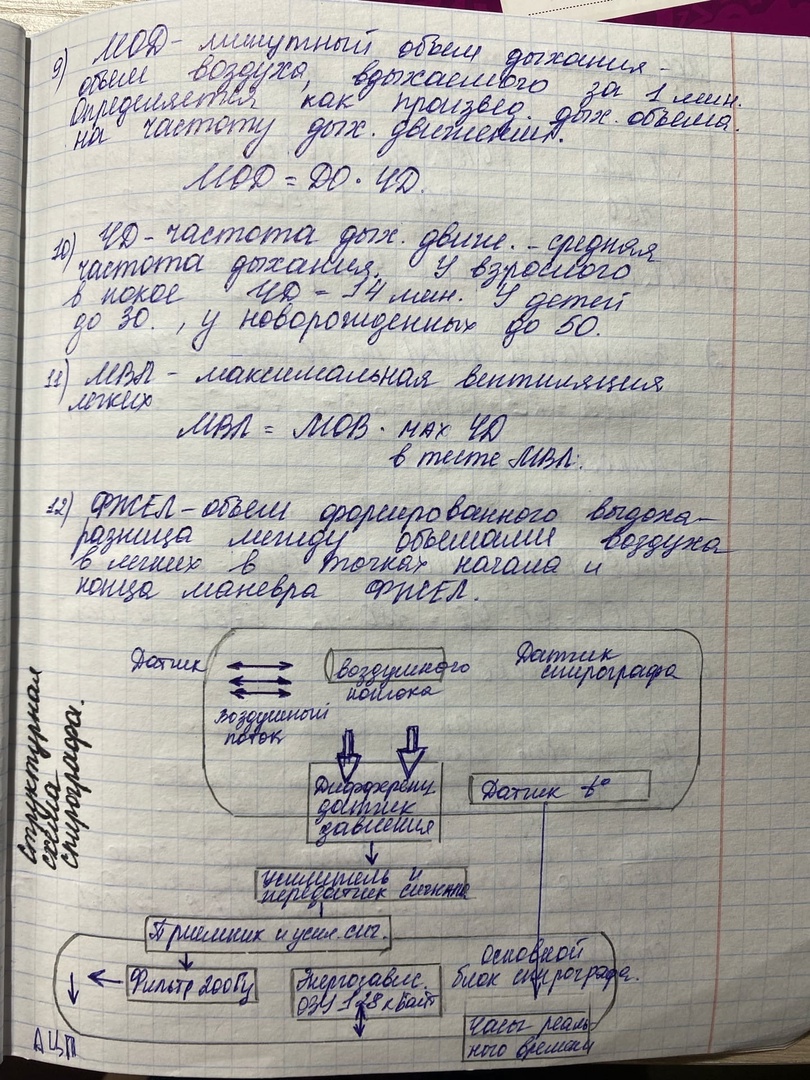 9) МОД - минутный объем дыхания -
объем воздуха, вдыхаемого за 1 мин.
Определяется как произвед. дых. объема
на частоту дых. движений.
МОД = ДО · ЧД.
10) ЧД - частота дых. движ. - средняя
частота дыхания. У взрослого
в покое ЧД - 14 мин. У детей
до 30. , у новорожденных до 50.
11) МВЛ - максимальная вентиляция
легких
МВЛ = МОВ · мах ЧД
в тесте МВЛ.
12) ФЖЕЛ - объем формированного выдоха -
разница между объемами воздуха
в легких в точках начала и
конца маневра ФЖЕЛ.
Структурная
схема
спирографа.
Датчик
воздушного
потока
Датчик
спирографа
Воздушный
поток
Дифференц
датчик
давления
Датчик t°
усилитель и
передатчик сигнала
Приемник и усил. сиг.
Основной
блок спирографа.
Фильтр 200Гц
Энергозавис.
ОЗУ 128 кбайт
Часы реаль-
ного времени
АЦП